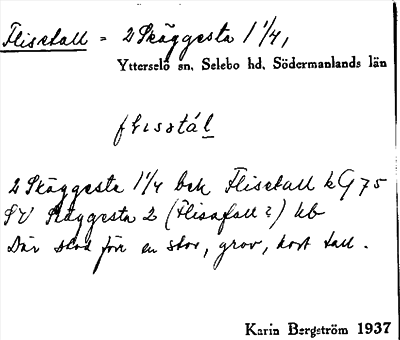 Flisetall = 2 Skäggesta 1 1/4,
Ytterselö sn. Selebo hd. Södermanlands län
flisstál
2 Skäggesta 1 1/4 bek Flisetall kG 75
SV Skäggesta 2 (Flisafall?) kb
Där stod förr en stor, grov, kort tall.
Karin Bergström 1937